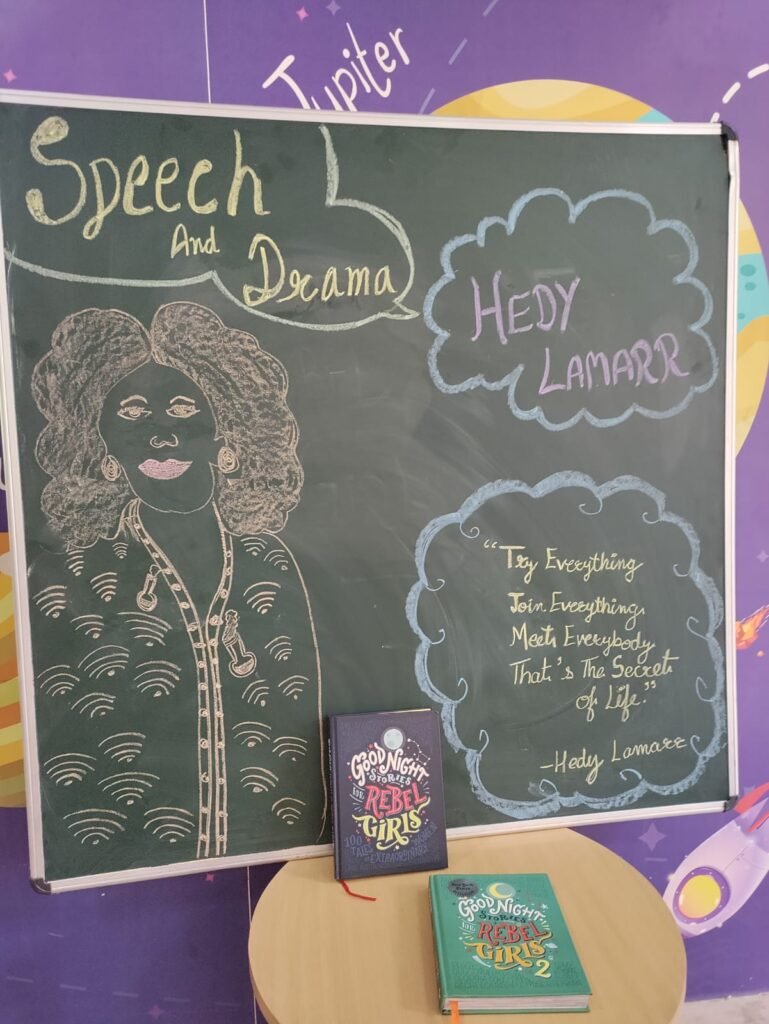 Jupiter
Speech
And
Drama
HEDY
LAMARR
“Try Everything
Join Everything,
Meet Everybody
That's The Secret
of Life.”
-Hedy Lamarr
GOOD NIGHT
STORIES
FOR
REBEL
GIRLS
100
TALES
OF EXTRAORDINARY
WOMEN
GOOD NIGHT
STORIES
FOR
REBEL
GIRLS
2